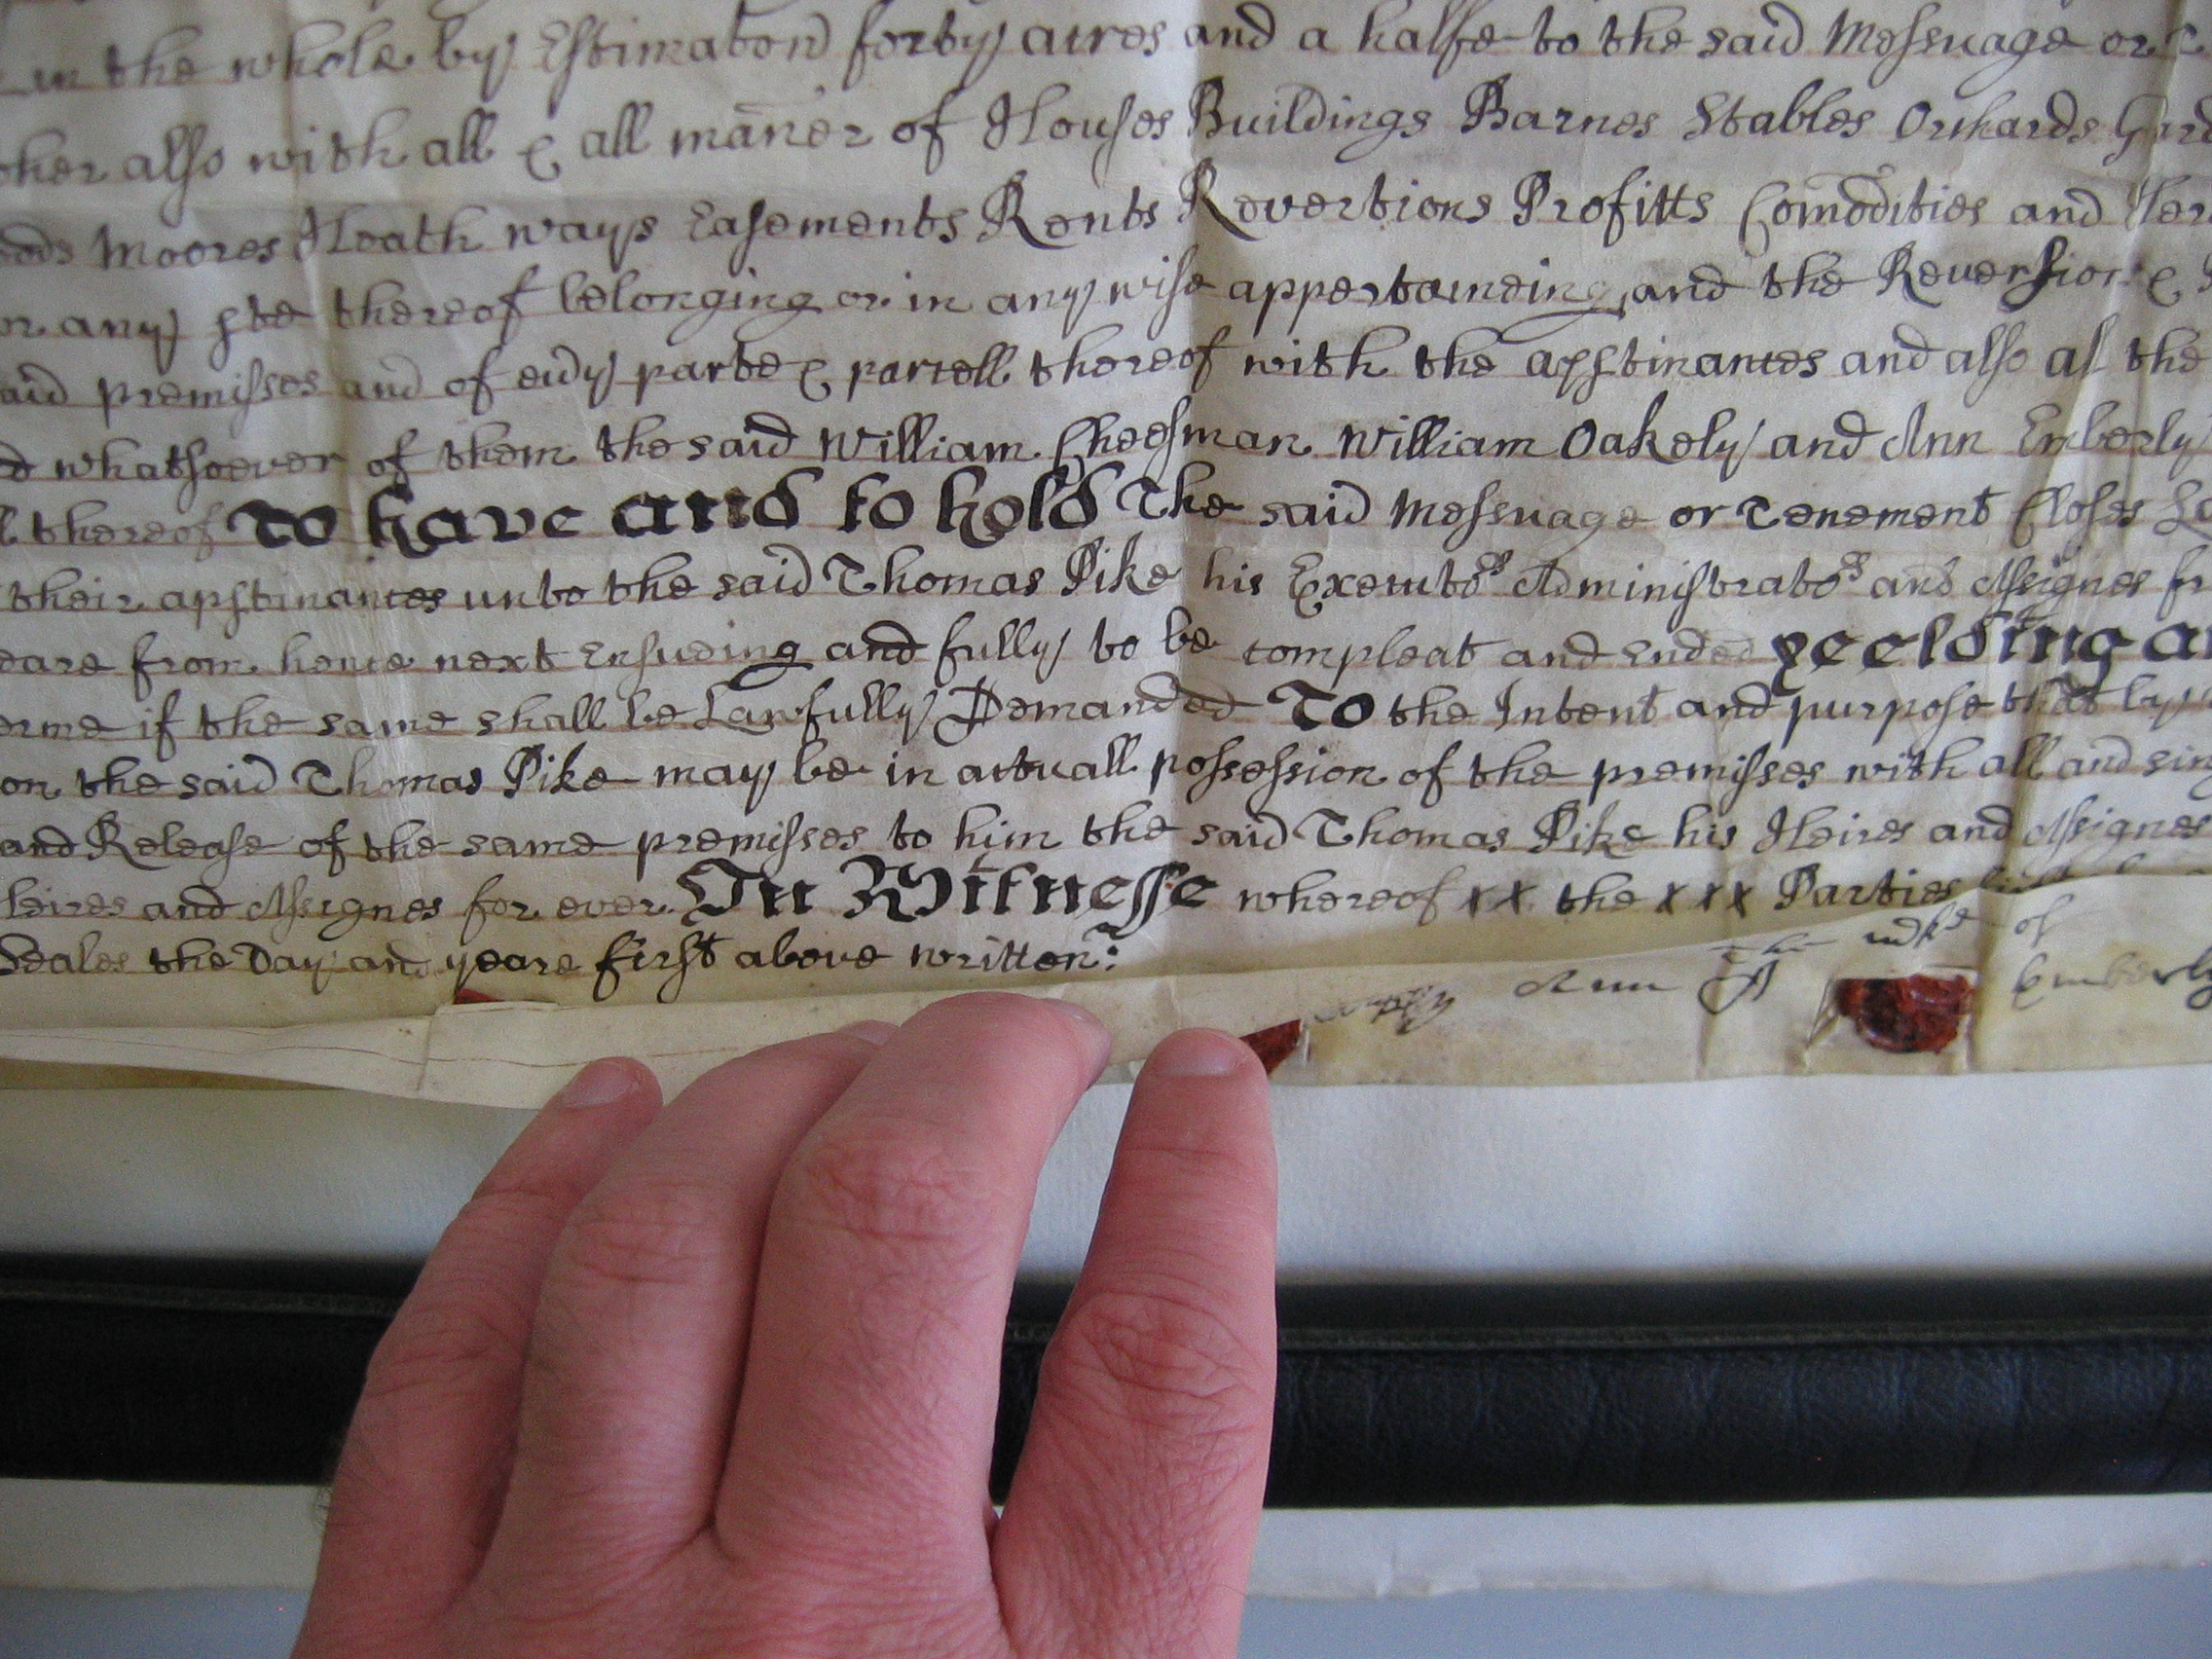 in the whole by Estimacon forty acres and a halfe to the said Messuage or
also with all & all maner of Houses Buildings Barnes Stables Orchards
Moores Heath ways Easements Rents Revertions Profitts Comodities and
or any pte thereof belonging or in any wise apperteineing and the Reversion &
premisses and of evy parte & parcell thereof with the apptinances and also al the
whatsoever of them the said William Cheesman William Oakely and Ann Emberly
thereof To have and to hold The said Messuage or Tenement Closes
their apptinances unto the said Thomas Pike his Executors Administrators and Assignes
from hence next Ensueing and fully to be compleat and ended yeelding
if the same shall be Lawfully Demanded To the Intent and purpose that by
on the said Thomas Pike may be in actuall possession of the premisses with all and
and Release of the same premisses to him the said Thomas Pike his Heires and Assignes
heires and Assignes for ever In Witnesse whereof xx the xxx Parties
Seales the Day and yeare first above written:
Ann the mke of Emberly